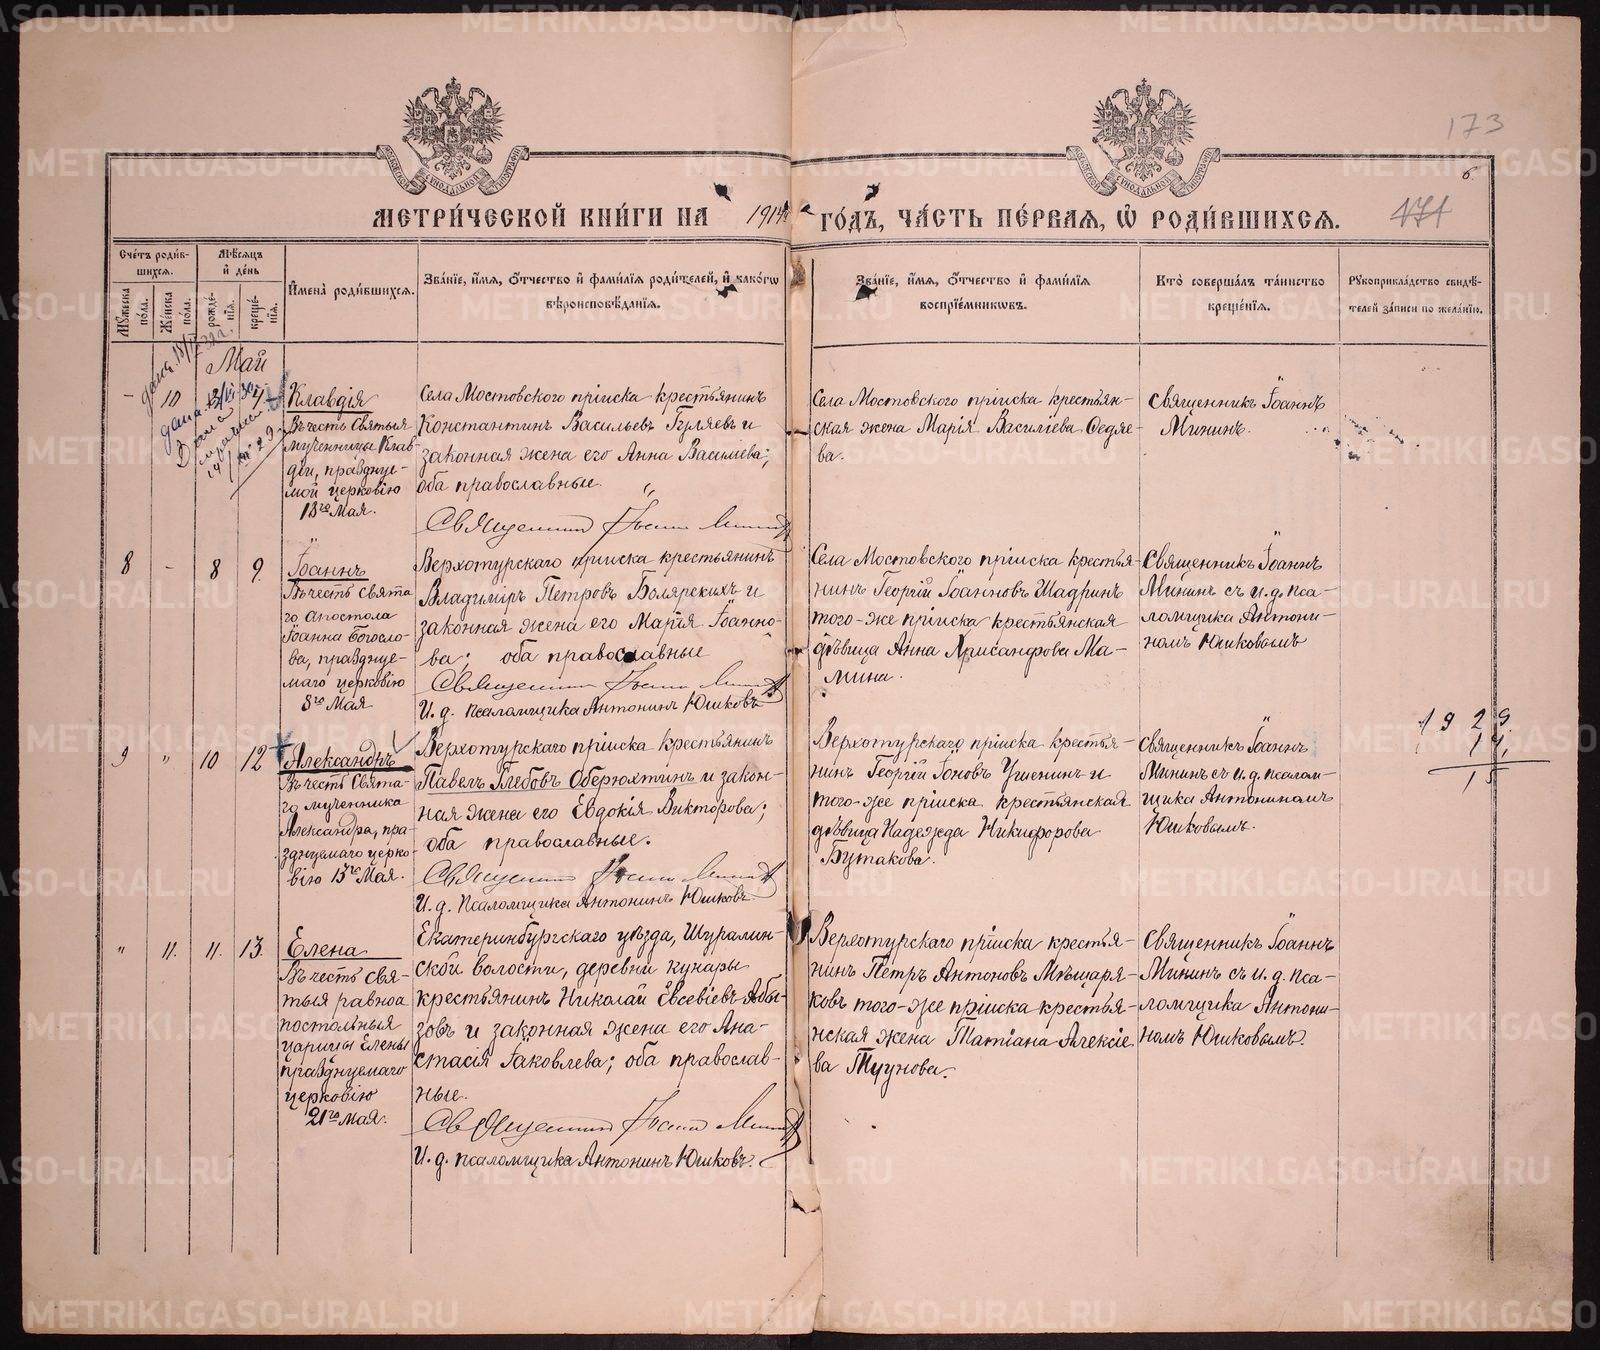 173
6
171
МЕТРИЧЕСКОЙ КНИГИ НА 1914й ГОДЪ, ЧАСТЬ ПЕРВАЯ, Ѡ РОДИВШИХСЯ.
Счетъ родившихся.
Мужеска пола.
Женска пола.
Мѣсяцъ и день
рожденія.
крещенія.
Имена родившихся.
Званіе, имя, отчество и фамилія родителей, и какого
вѣроисповѣданія.
Званіе, имя, отчество и фамилія
воспріемниковъ.
Кто совершалъ таинство
крещенія.
Рукоприкладство свидѣ-
телей записи по желанію.
Май
- 10
4
Клавдія
Въ честь святыя
мученницы Клав-
діи, празднуе-
мой церковію
18го Мая.
Села Мостовского пріиска крестьянинъ
Константинъ Васильевъ Гуляевъ и
законная жена его Анна Василіева;
оба православные.
Священникъ Іоаннъ Мининъ
Села Мостовского пріиска крестьян-
ская жена Марія Василіева Федяе-
ва.
священникъ Іоаннъ
Мининъ.
8 - 8 9
Іоаннъ
Въ честь свята-
го апостола
Іоанна Богосло-
ва, празднуе-
маго церковію
8го Мая
Верхотурскаго пріиска крестьянинъ
Владиміръ Петровъ Болярскихъ и
законная жена его Марія Іоанно-
ва; оба православные
Священникъ Іоаннъ Мининъ
И. д. псаломщика Антонинъ Юшковъ
Села Мостовского пріиска крестья-
нинъ Георгій Іоанновъ Шадринъ
того-же пріиска крестьянская
дѣвица Анна Хрисанфова Ма-
мина.
священникъ Іоаннъ
Мининъ съ и. д. пса-
ломщика Антони-
номъ Юшковымъ
9 " 10 12
Александръ
Въ честь свята-
го мученника
Александра, пра-
зднуемаго церко-
вію 13го Мая.
Верхотурскаго пріиска крестьянинъ
Павелъ Глебовъ Оберюхтинъ и закон-
ная жена его Евдокія Викторова;
оба православные.
Священникъ Іоаннъ Мининъ
И. д. псаломщика Антонинъ Юшковъ
Верхотурскаго пріиска крестья-
нинъ Георгій Іоновъ Ушенинъ и
того-же пріиска крестьянская
дѣвица Надежда Никифорова
Бутакова.
священникъ Іоаннъ
Мининъ съ и. д. псалом-
щика Антониномъ
Юшковымъ.
1929
14
15
" 11. 11. 13.
Елена
Въ честь свя-
тыя равноа
постольныя
царицы Елены
празднуемаго
церковію
21го Мая.
Екатеринбургскаго уѣзда, Шуралин-
ской волости, деревни Кунары
крестьянинъ Николай Евсевіевъ Абы-
зовъ и законная жена его Ана-
стасія Іаковлева; оба православ-
ные.
Священникъ Іоаннъ Мининъ
И. д. псаломщика Антонинъ Юшковъ.
Верхотурскаго пріиска крестья-
нинъ Петръ Антоновъ Мѣщеря-
ковъ того-же пріиска крестья-
нская жена Татіана Алексіе
ва Тцунова.
священникъ Іоаннъ
Мининъ съ и. д. пса-
ломщика Антони-
номъ Юшковымъ.
METRIKI.GASO-URAL.RU